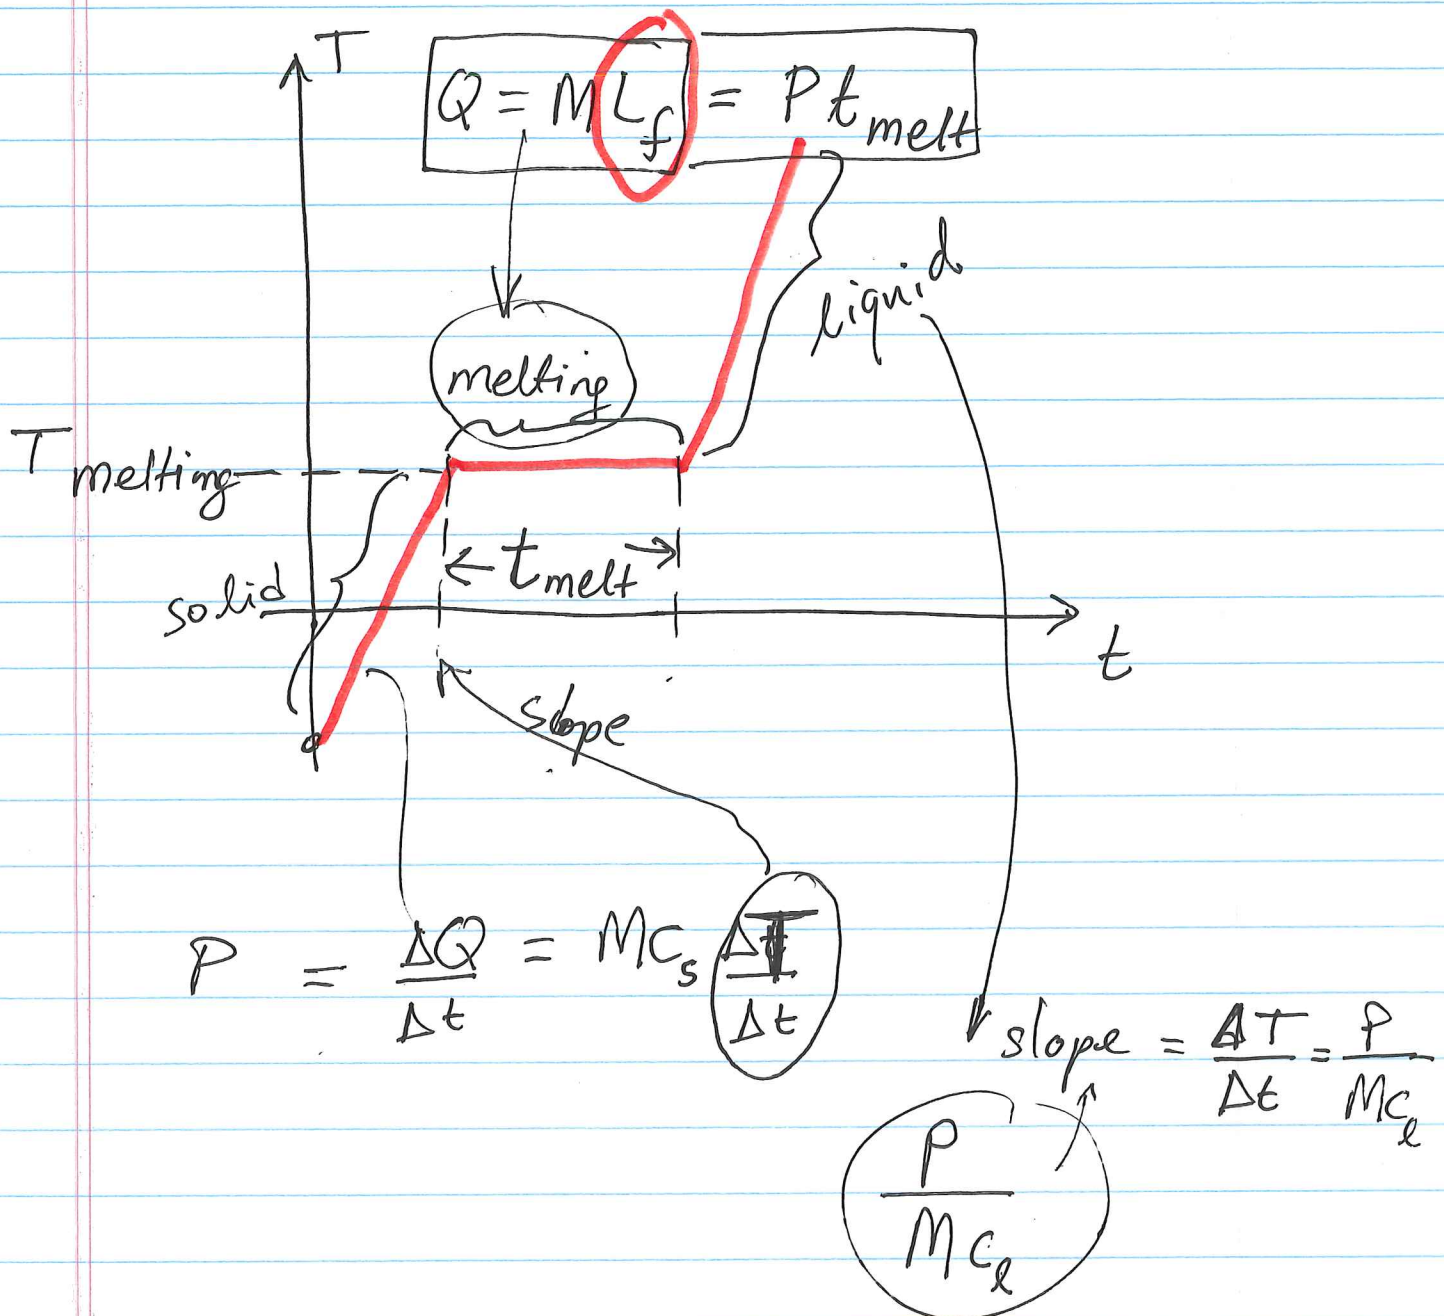 T
Q = M L_f = P t_melt
melting
liquid
T_melting
t_melt
solid
t
slope
P = ΔQ/Δt = M c_s ΔT/Δt
slope = ΔT/Δt = P/(M c_ℓ)
P/(M c_ℓ)